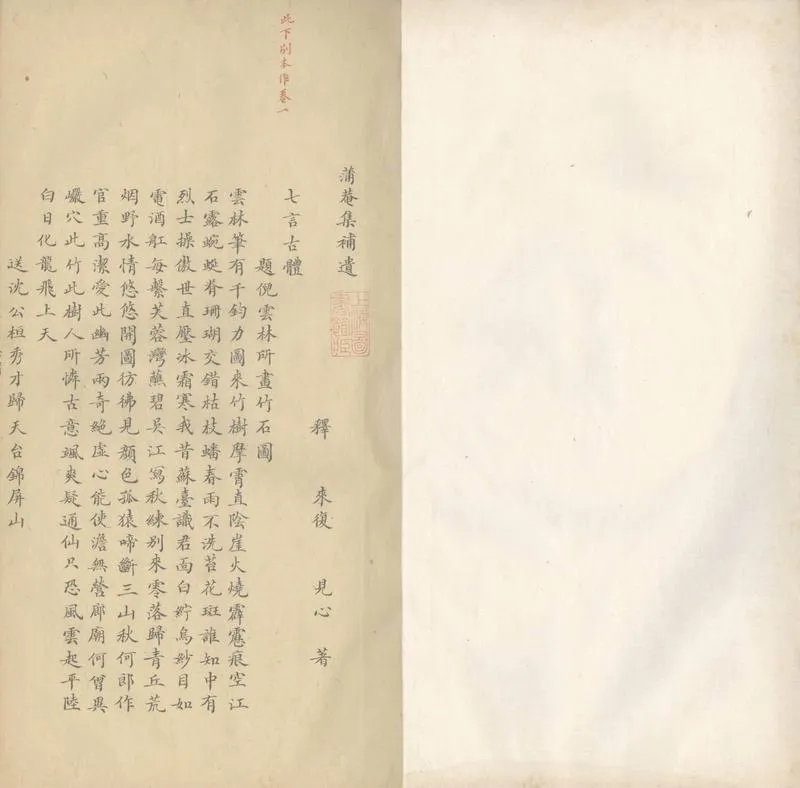 此下别本作卷一
蒲菴集補遺
上海圖書館藏
釋 來復 見心 著
七言古體
題倪雲林所畫竹石圖
雲林筆有千鈞力圖來竹樹摩霄直陰崖火燒霹靂痕空江
石露蜿蜒脊珊瑚交錯枯枝蟠春雨不洗苔花斑誰知中有
烈士操傲世直壓冰霜寒我昔蘇臺識君面白紵烏紗目如
電酒舡每繫芙蓉灣蘸碧吳江寫秋練別來零落歸青丘荒
烟野水情悠悠開圖彷彿見顏色孤猿啼斷三山秋何郎作
官重高潔愛此幽芳兩奇絕虛心能使澹無營廊廟何曾異
巖穴此竹此樹人所憐古意颯爽疑通仙只恐風雲起平陸
白日化龍飛上天
送沈公桓秀才歸天台錦屏山